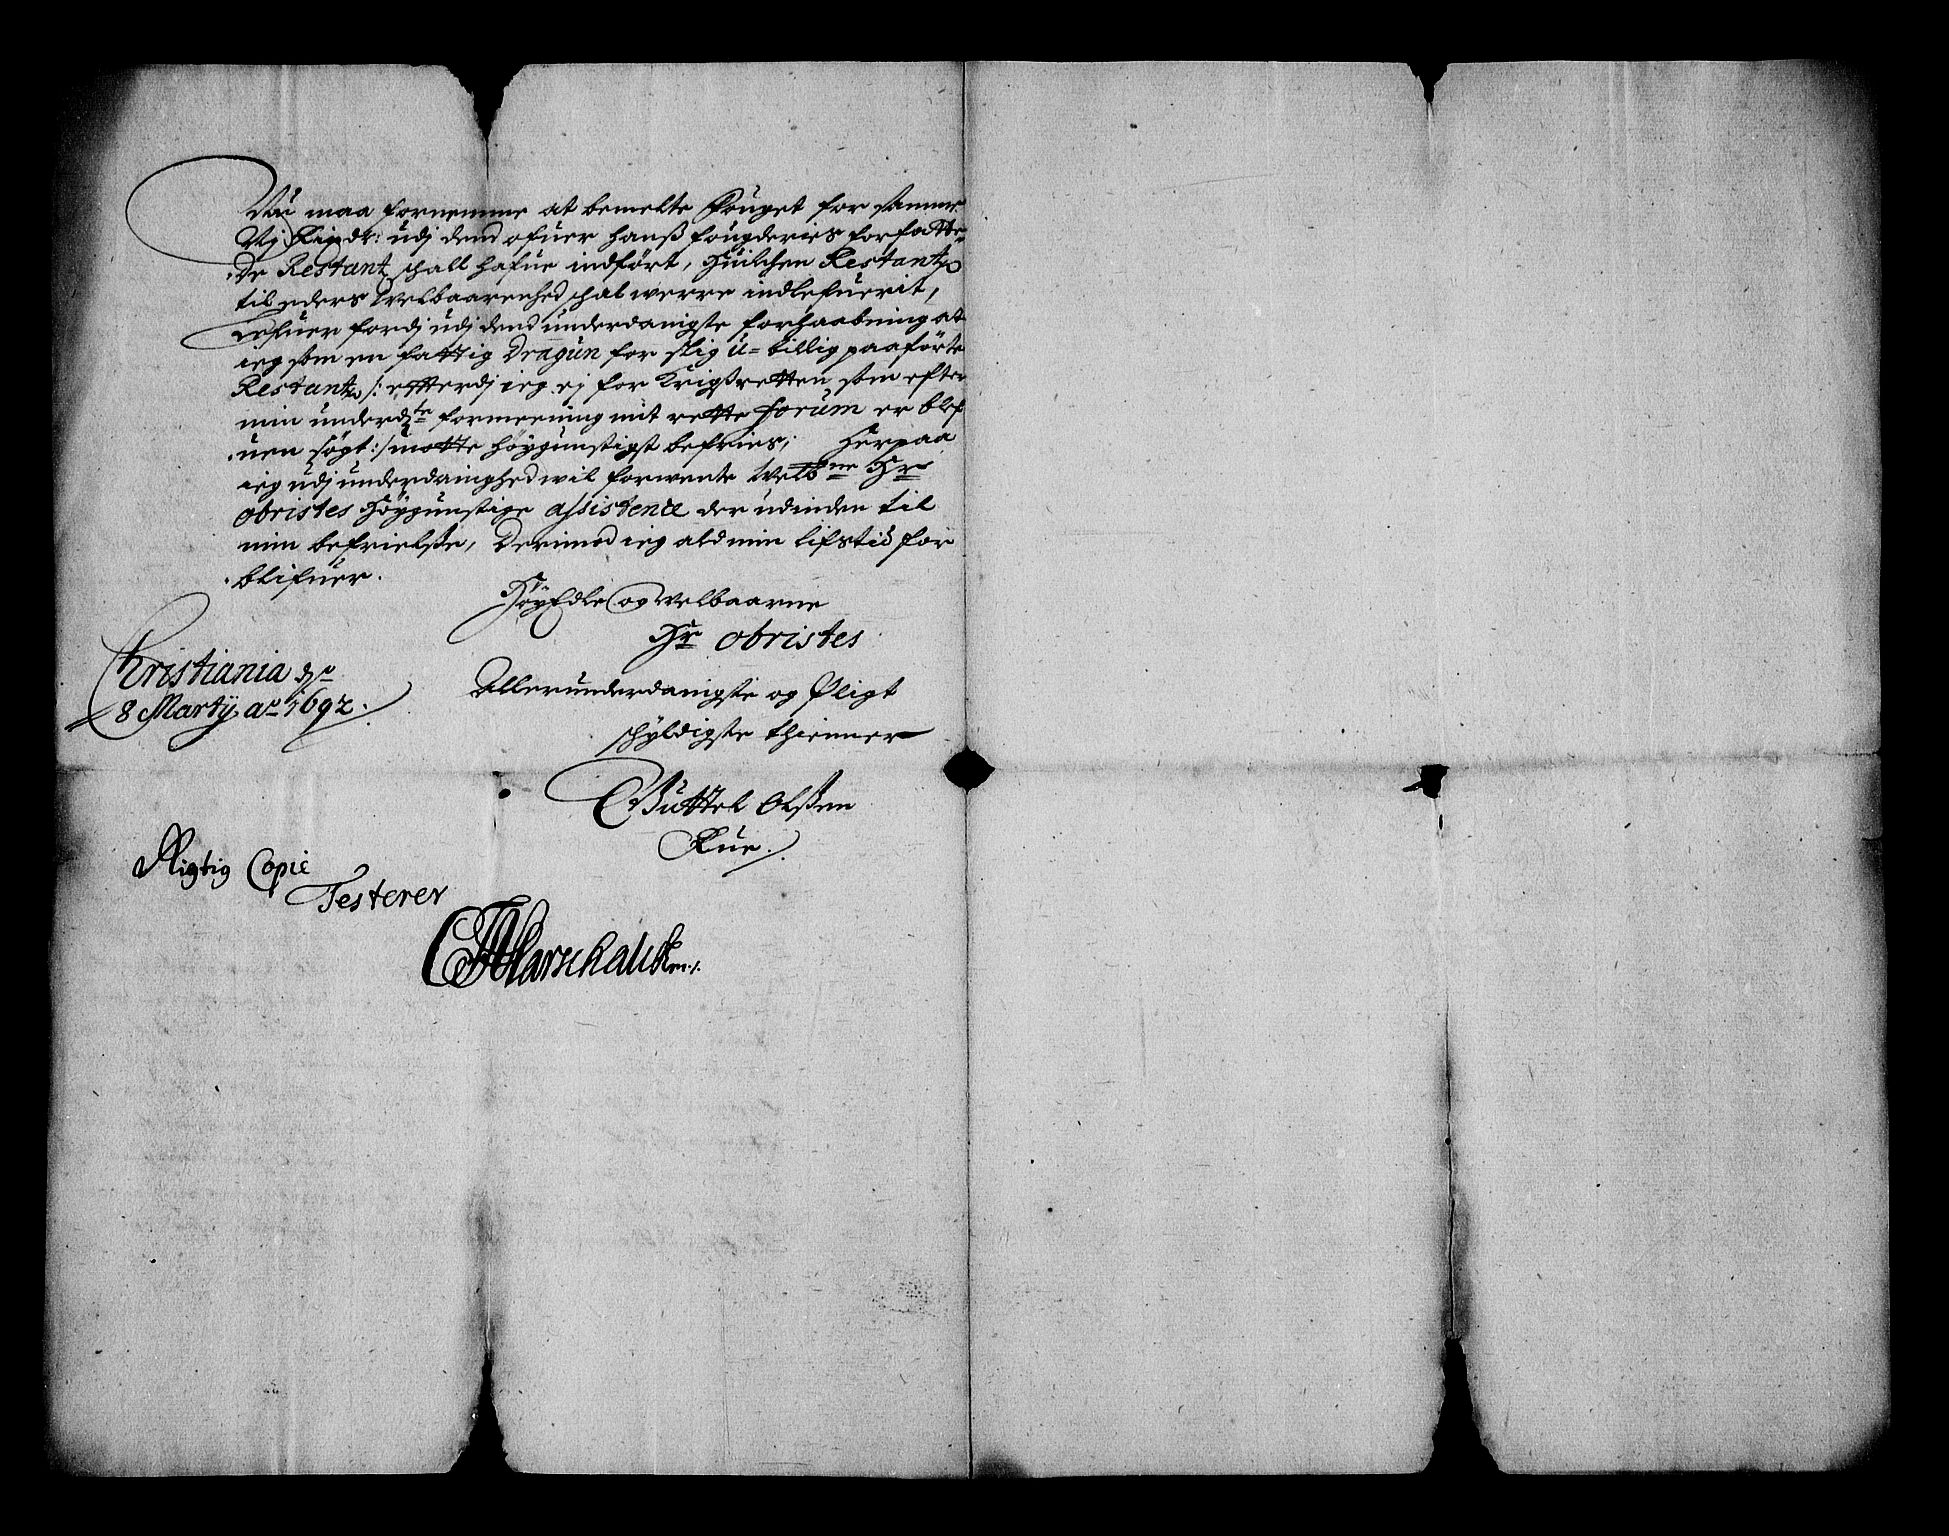 Nu maa fornemme at bemelte Fouget for samme
Vj Rixdr: udj dend ofuer hanß fougderies forfatte-
De Restantz schall hafue indført, Huilchen Restantz
til eders Velbaarenhed schal werre indlefuerit,
Lefuer fordj udj dend underdanigste forhaabning at
ieg som en fattig Dragun for slig u-billig paaførte
Restantz /: effterdj ieg ej for Krigßretten som efter
min underdte formeening mit rette forum er blef
uen søgt :/ motte høygunstigst befries; Herpaa
ieg udj underdanighed wil forwente Welbne Hr
obristes Høygunstige assistence der udinden til
min befrielße, Derimod ieg ald min lifstid for
blifuer.
HøyEdle og Welbaarne
Hr obristes
Allerunderdanigste og Pligt
schyldigste thienner
Christiania de
8 Martij ao 1692.
Guttel Olßen
Rue.
Rigtig Copie
Testerer
CMarschalck